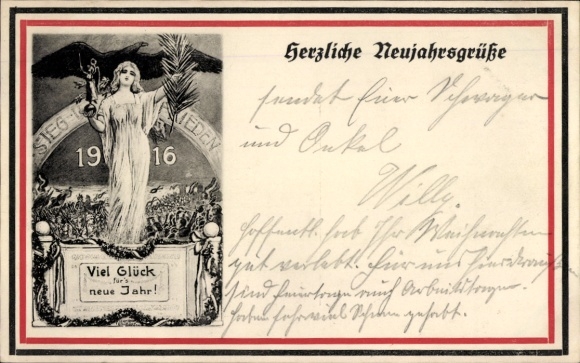 Herzliche Neujahrsgrüße
SIEG-
IEDEN
19 16
Viel Glück
für's
neue Jahr!
sendet Euer Schwager
und Onkel
Willy.
Hoffentl. habt Ihr Weihnachten
gut verlebt. Für uns hier draußen
sind Feiertage auch Arbeitstage.
haben sehr viel gehabt.